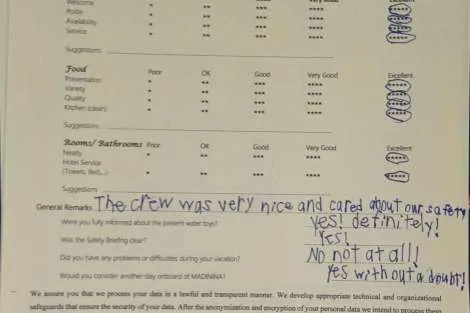 Welcome * ** *** **** *****
Polite * ** *** **** *****
Availability * ** *** **** *****
Service * ** *** **** *****
Suggestions
Food Poor OK Good Very Good Excellent
Presentation * ** *** **** *****
Variety * ** *** **** *****
Quality * ** *** **** *****
Kitchen (clean) * ** *** **** *****
Suggestions
Rooms/ Bathrooms Poor OK Good Very Good Excellent
Neatly * ** *** **** *****
Hotel Service
(Towels, Bed,..) * ** *** **** *****
Suggestions
General Remarks The crew was very nice and cared about our safety
Were you fully informed about the present water toys? yes! definitely!
Was the Safety Briefing clear? Yes!
Did you have any problems or difficulties during your vacation? No not at all!
Would you consider another day onboard of MADININA? Yes without a doubt!
We assure you that we process your data in a lawful and transparent manner. We develop appropriate technical and organizational
safeguards that ensure the security of your data. After the anonymization and encryption of your personal data we intend to process them